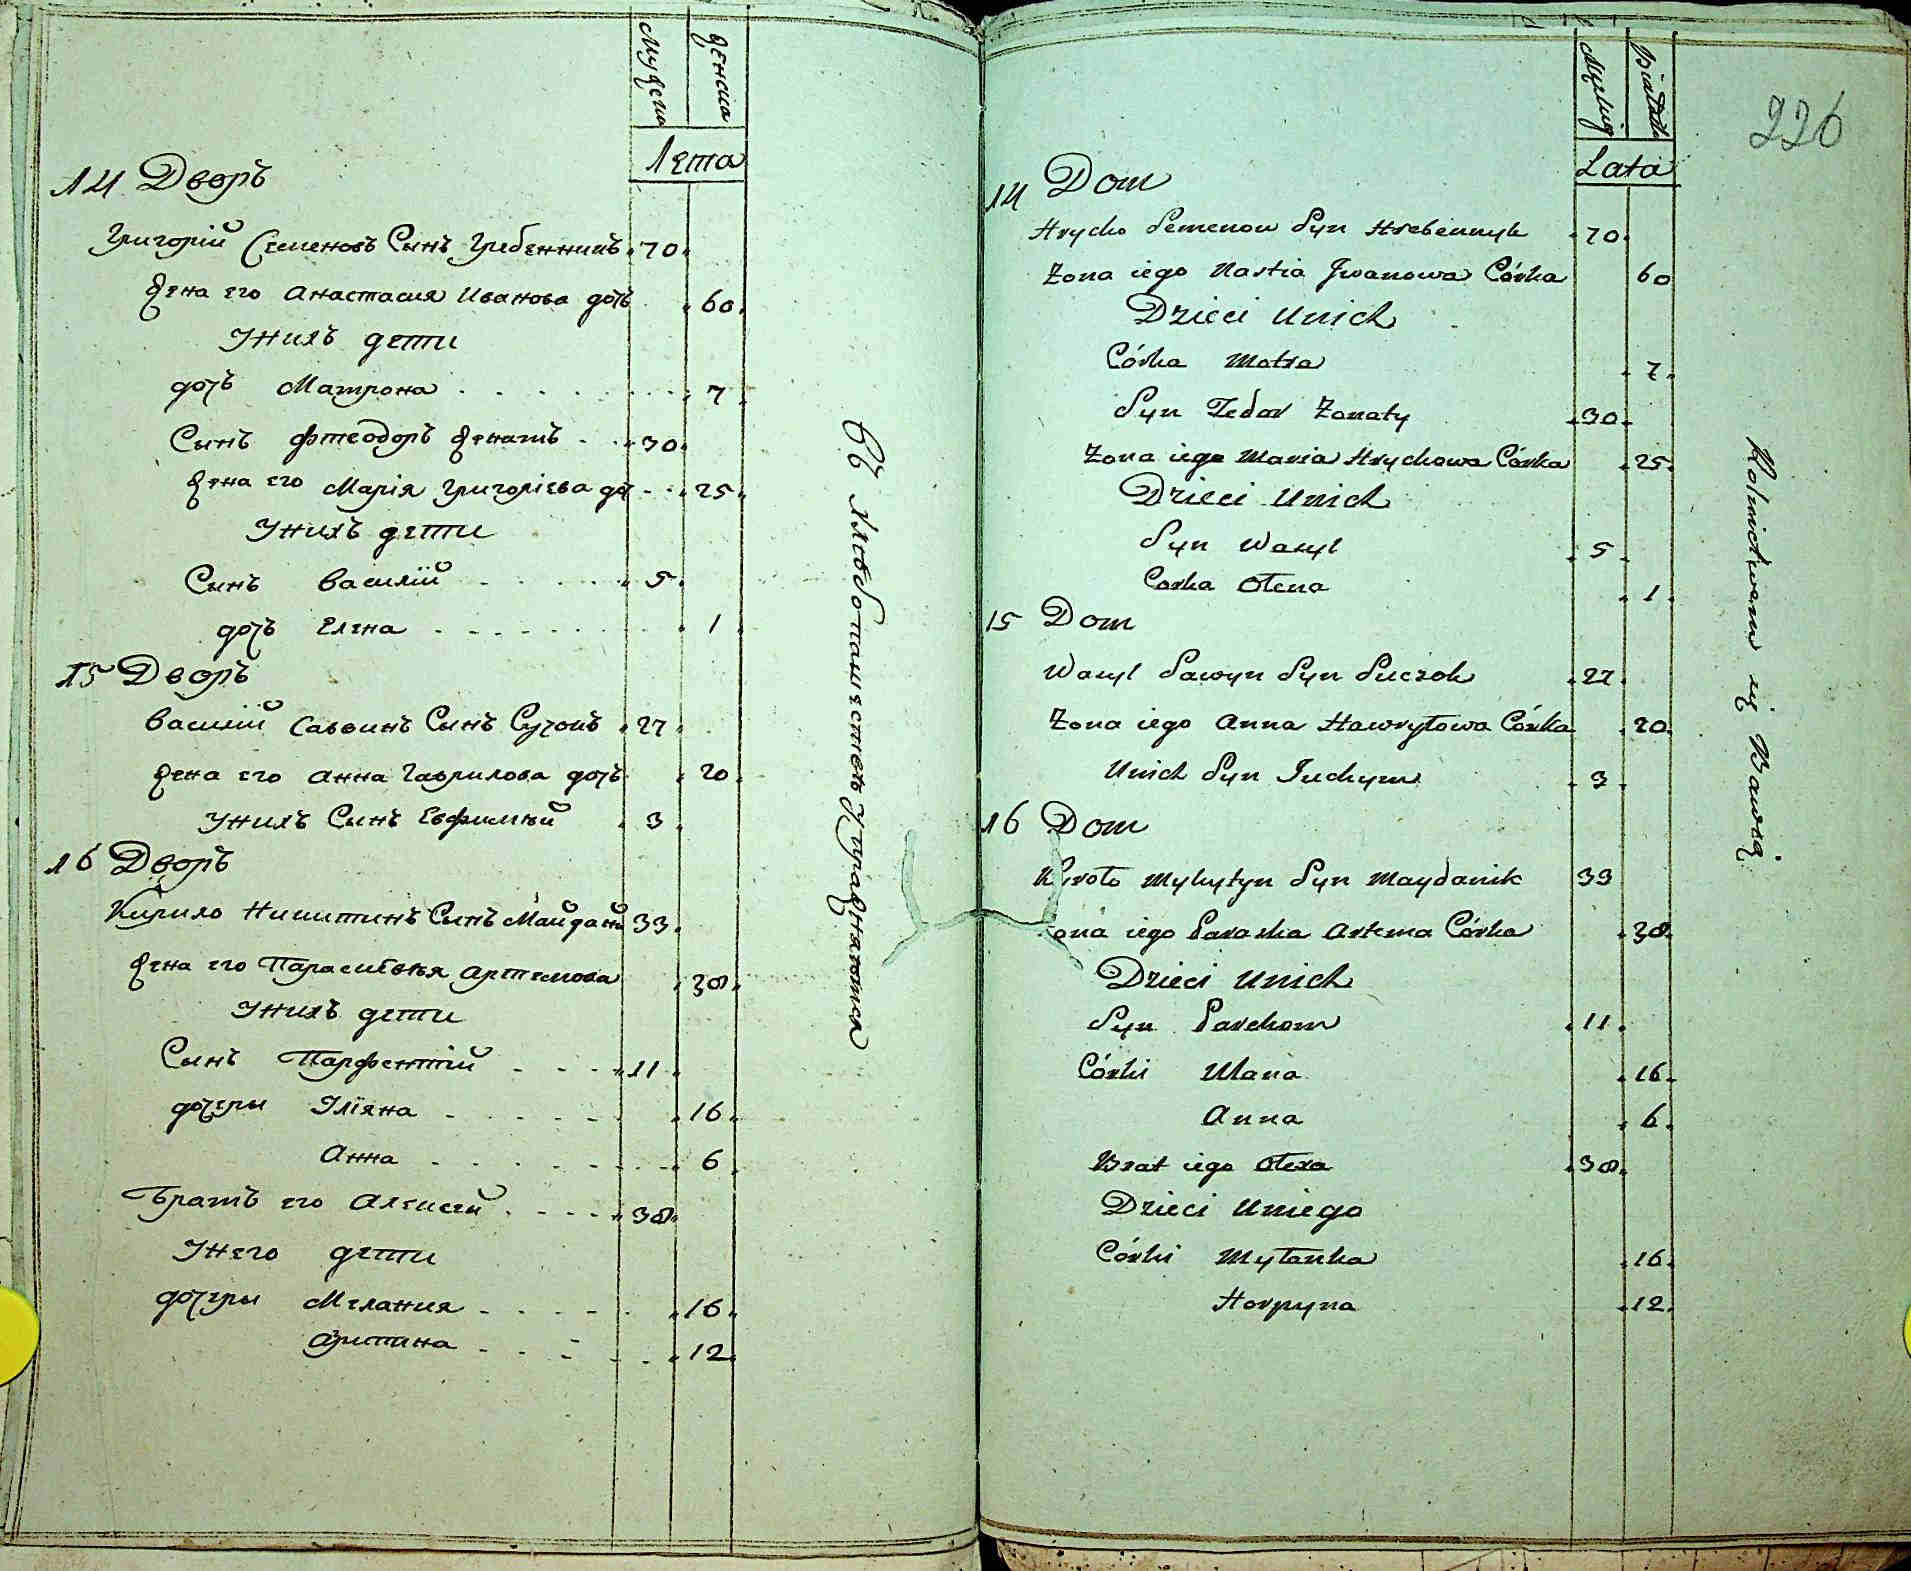 мужеска
женска
Лета
14 Дворъ
Григорій Семеновъ Сынъ Гребенникъ 70
Жена его Анастасия Иванова дочъ 60
Унихъ дети
дочъ Матрона 7
Сынъ Фтеодоръ женатъ 30
Жена его Марія Григоріева до 25
Унихъ дети
Сынъ Василій 5
дочъ Елена 1
15 Дворъ
Василій Саввинъ Сынъ Сучокъ 27
Жена его Анна Гаврилова дочъ 20
Унихъ Сынъ Евфимъй 3
16 Дворъ
Кирило Никитинъ Сынъ Майдани 33
Жена его Параскевья Артемова 38
Унихъ дети
Сынъ Парфентій 11
дочеры Уліяна 16
Анна 6
Братъ его Алексей 38
Унего дети
дочеры Мелания 16
Аритина 12
въ хлебопашестве упражняются
226
Męskiej
Białka
Lata
14 Dom
Hryćko Semenow Syn Hrebennyk 70
Żona iego Nastia Jwanowa Córka 60
Dzieci Unich
Córka Motra 7
Syn Fedor Żonaty 30
Żona iego Maria Hrychowa Córka 25
Dzieci Unich
Syn Wasyl 5
Corka Ołena 1
15 Dom
Wasyl Sawyn Syn Suczok 27
Żona iego Anna Hawryłowa Córka 20
Unich Syn Juchym 3
16 Dom
Kyryło Mykytyn Syn Maydanik 33
ona iego Paraska Artema Córka 38
Dzieci Unich
Syn Parchom 11
Córki Ulana 16
Anna 6
Brat iego Ołexa 38
Dzieci Uniego
Córki Myłanka 16
Horpyna 12
Rolnictwem się Bawią